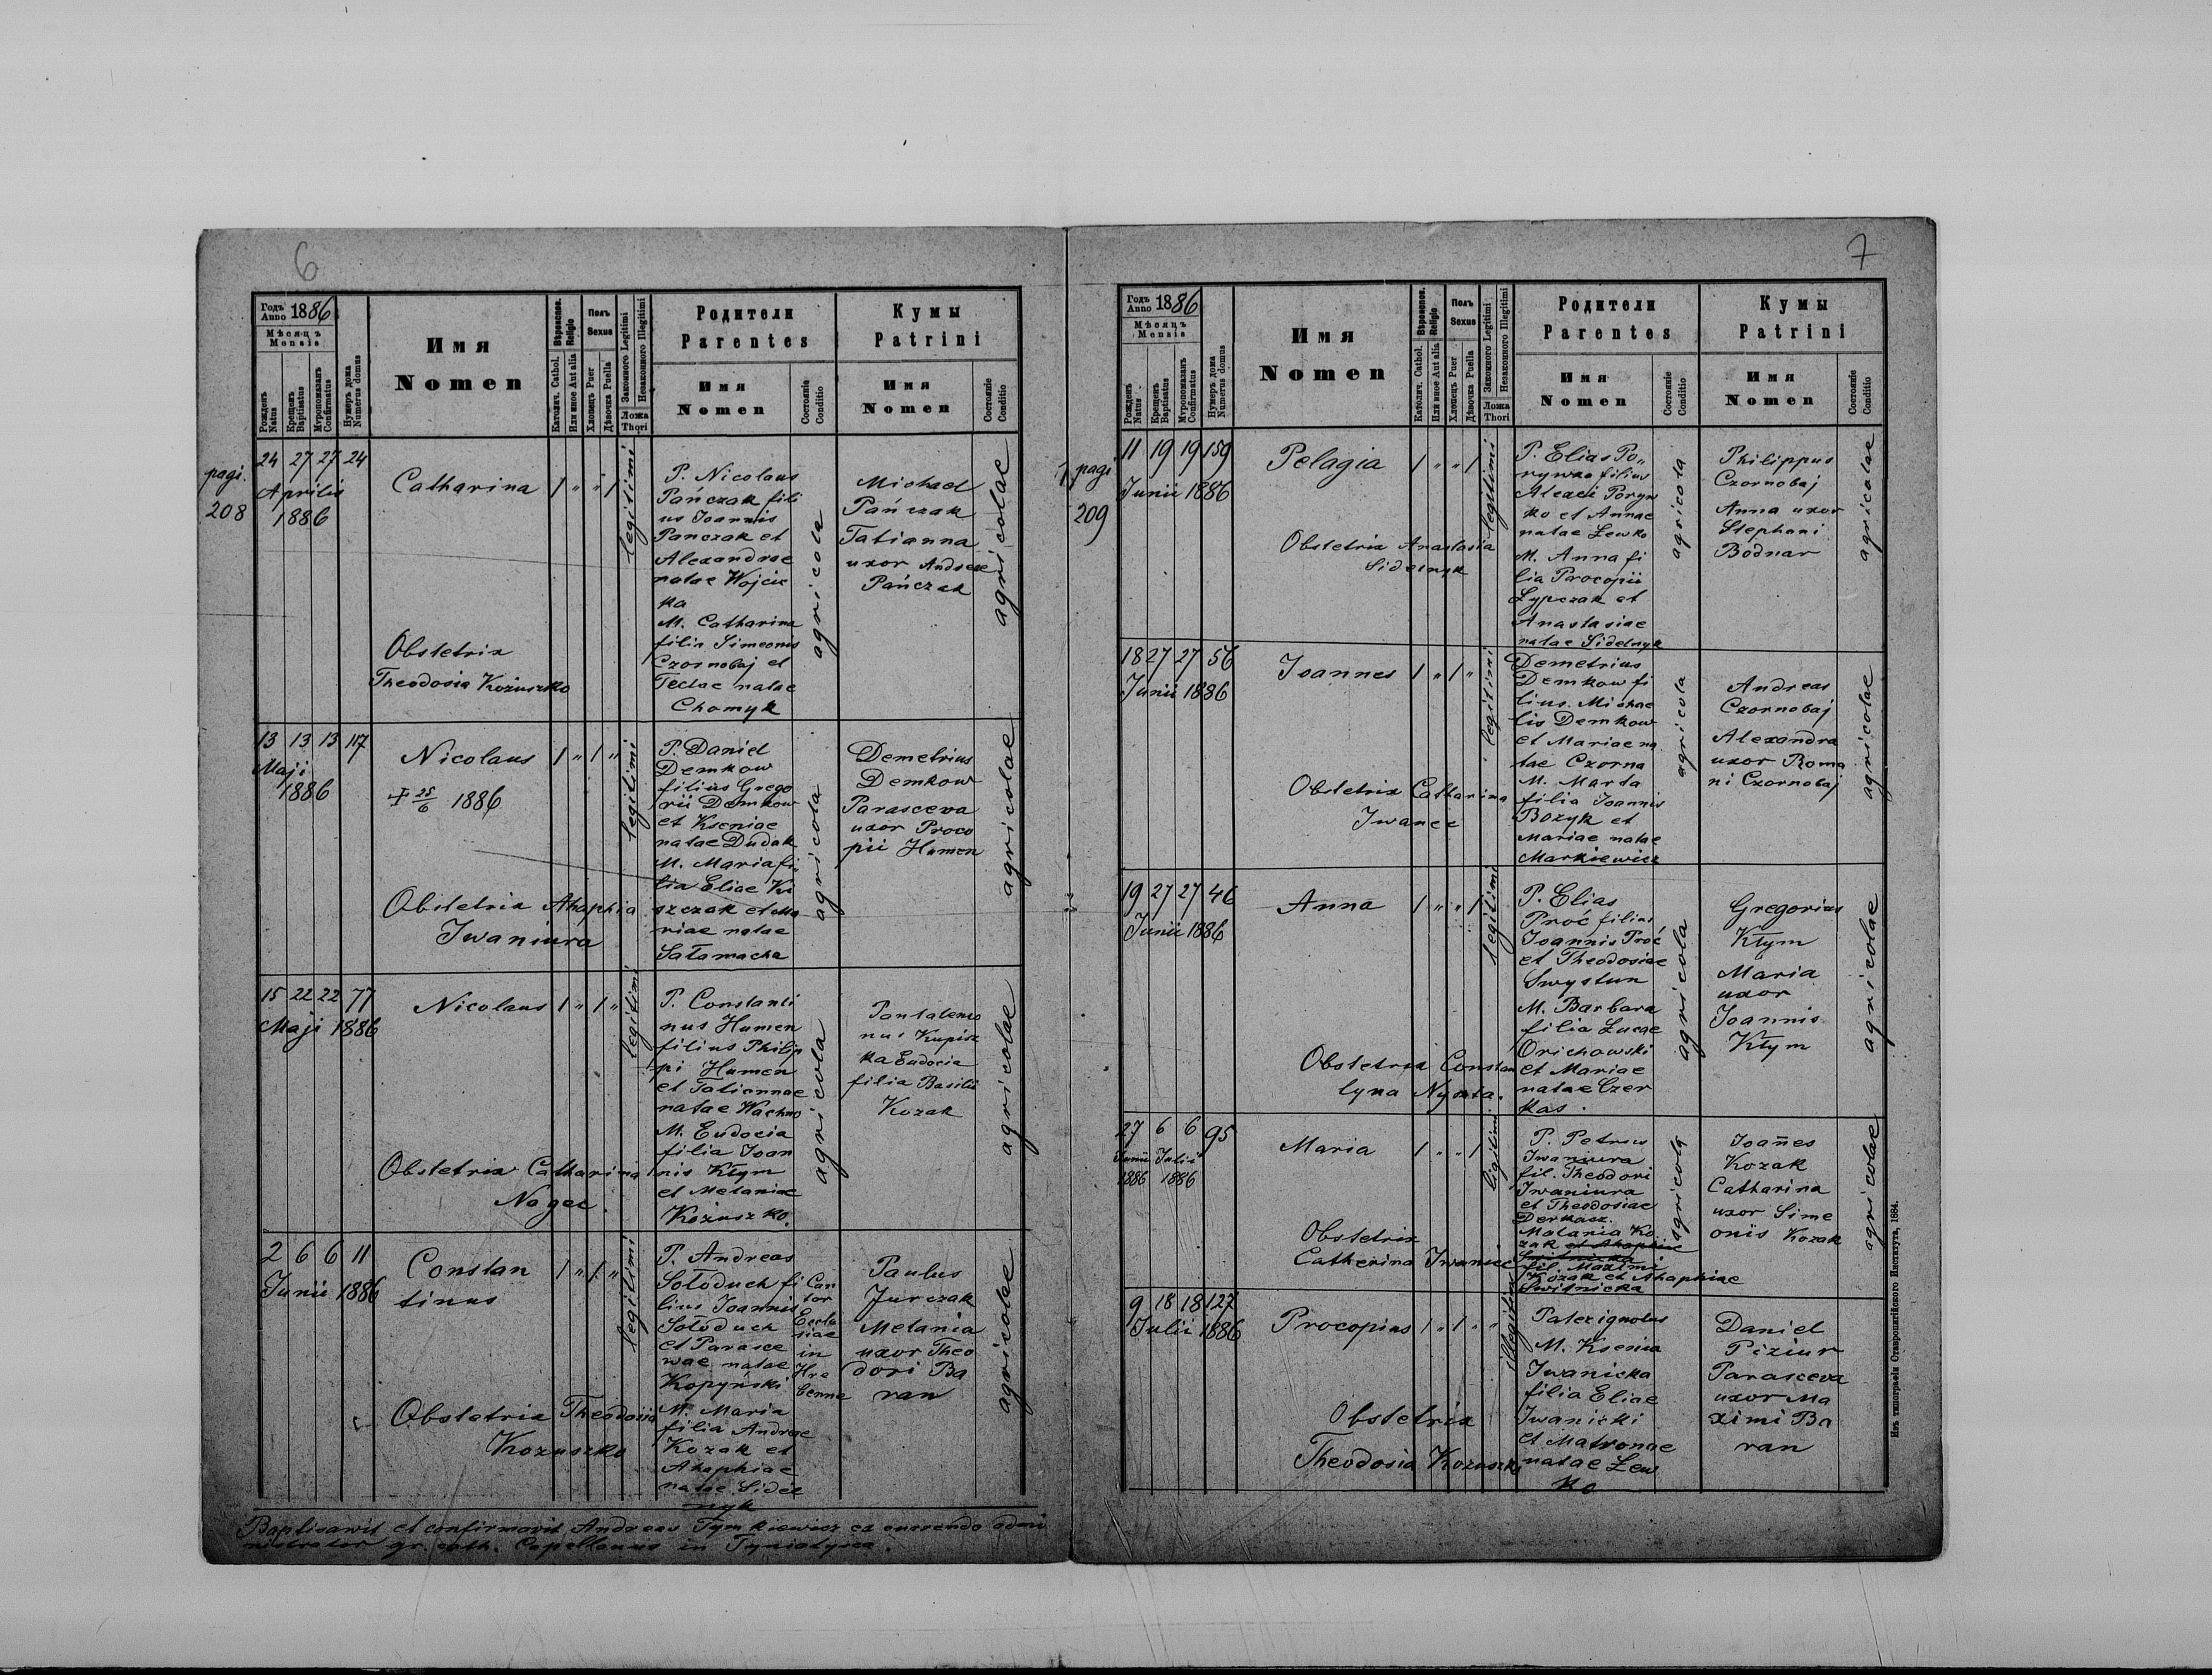 6
Годъ Anno 1886
Мѣсяцъ Mensis
Рожденъ Natus
Крещенъ Baptisatus
Мѵропомазанъ Confirmatus
Нумеръ дома Numerus domus
Имя
Nomen
Вѣроиспов. Religio
Католич. Cathol.
Или иное Aut alia
Полъ Sexus
Хлопецъ Puer
Дѣвочка Puella
Законного Legitimi
Незаконного Illegitimi
Ложа Thori
Родители
Parentes
Имя
Nomen
Состояніе Conditio
Кумы
Patrini
Имя
Nomen
Состояніе Conditio
pagi.
208
24 27 27 24
Aprilis
1886
Catharina
Obstetrix
Theodosia Kożuszko
legitimi
P. Nicolaus
Pańczak fili
us Joannis
Panczak et
Alexandrae
natae Wojcic
ka
M. Catharina
filia Simeonis
Czornobaj et
Teclae natae
Chomyk
agricola
Michael
Pańczak
Tatianna
uxor Andreae
Pańczak
agricolae
13 13 13 117
Maji
1886
Nicolaus
+ 25/6 1886
Obstetrix Ahaphia
Iwaniura
legitimi
P. Daniel
Demkow
filius Grego
rii Demkow
et Kseniae
natae Dudak
M. Maria fi
lia Eliae Ki
szczak et Ma
riae natae
Sałamacha
agricola
Demetrius
Demkow
Parasceva
uxor Proco
pii Humen
agricolae
15 22 22 77
Maji 1886
Nicolaus
Obstetrix Catharina
Nogac.
legitimi
P. Constanti
nus Humen
filius Philip
pi Humen
et Tatiannae
natae Wachno
M. Eudocia
filia Joan
nis Kłym
et Melaniae
Kożuszko.
agricola
Pantalemo
nus Kupisz
ka Eudocia
filia Basilii
Kozak
agricolae
2 6 6 11
Junii 1886
Constan
tinus
Obstetrix Theodosia
Kozuszko
legitimi
P. Andreas
Sołoduch fi
lius Joannis
Sołoduch
et Parasce
wae natae
Kopyński
M. Maria
filia Andreae
Kozak et
Ahaphiae
natae Sidel
nyk
Can
tor
Eccle
siae
in
Hre
benne
Paulus
Jurczak
Melania
uxor Theo
dori Ba
ran
agricolae
Baptisavit et confirmavit Andreas Tymkiewicz ex currendo admi
nistrator gr. cath. Capellanus in Tyniatyska.
7
Годъ Anno 1886
Мѣсяцъ Mensis
Рожденъ Natus
Крещенъ Baptisatus
Мѵропомазанъ Confirmatus
Нумеръ дома Numerus domus
Имя
Nomen
Вѣроиспов. Religio
Католич. Cathol.
Или иное Aut alia
Полъ Sexus
Хлопецъ Puer
Дѣвочка Puella
Законного Legitimi
Незаконного Illegitimi
Ложа Thori
Родители
Parentes
Имя
Nomen
Состояніе Conditio
Кумы
Patrini
Имя
Nomen
Состояніе Conditio
pagi
209
11 19 19 159
Junii 1886
Pelagia
Obstetrix Anastasia
Sidelnyk
legitimi
P. Elias Po„
rywko filius
Alexei Poryw
ko et Annae
natae Lewko
M. Anna fi
lia Procopii
Lypczak et
Anastasiae
natae Sidelnyk
agricola
Philippus
Czornobaj
Anna uxor
Stephani
Bodnar
agricolae
18 27 27 56
Junii 1886
Joannes
Obstetrix Catharina
Iwanec
legitimi
Demetrius
Demkow fi
lius Michae
lis Demkow
et Mariae na
tae Czorna
M. Marta
filia Joannis
Bozyk et
Mariae natae
Markiewicz
agricola
Andreas
Czornobaj
Alexandra
uxor Roma
ni Czornobaj
agricolae
19 27 27 46
Junii 1886
Anna
Obstetrix Constan
tyna Nyxta.
legitimi
P. Elias
Proć filius
Joannis Proć
et Theodosiae
Swystun
M. Barbara
filia Lucae
Orichowski
et Mariae
natae Czer
kas.
agricola
Gregorius
Kłym
Maria
uxor
Joannis
Kłym
agricolae
27 6 6 95
Junii Julii
1886 1886
Maria
Obstetrix
Catherina Iwaniec
legitimi
P. Petrus
Iwaniura
fil. Theodori
Iwaniura
et Theodosiae
Derkacz.
Malania Ko
zak et Ahaphiae
Switnicka
fil. Maximi
Kozak et Ahaphiae
Switnicka
agricola
Joannes
Kozak
Catharina
uxor Sime
onis Kozak
agricolae
9 18 18 127
Julii 1886
Procopius
Obstetrix
Theodosia Kozuszko
illegitimi
Pater ignotus
M. Ksenia
Iwanicka
filia Eliae
Iwanicki
et Matronae
natae Lew
ko
Daniel
Piziur
Parasceva
uxor Ma
ximi Ba
ran
Изъ типографіи Ставропигійского Института, 1884.